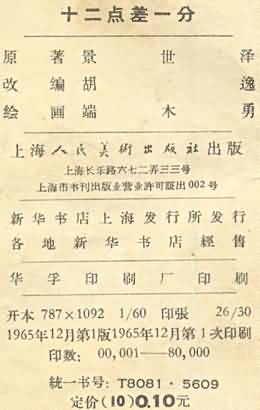 十二点差一分
原著景世泽
改编胡逸
绘画端木勇
上海人民美術出版社出版
上海长乐路六七二弄三三号
上海市书刊出版业营业許可証出002号
新华书店上海发行所发行
各地新华书店經售
华孚印刷厂印刷
开本 787×1092 1/60 印張 26/30
1965年12月第1版1965年12月第1次印刷
印数: 00,001——80,000
統一书号: T8081·5609
定价(10)0.10元